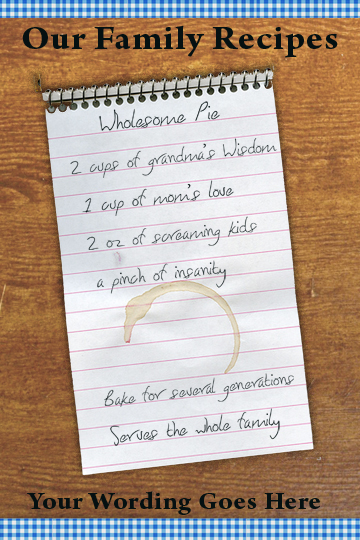 Our Family Recipes
Wholesome Pie
2 cups of grandma's Wisdom
1 cup of mom's love
2 oz of screaming kids
a pinch of insanity
Bake for several generations
Serves the whole family
Your Wording Goes Here